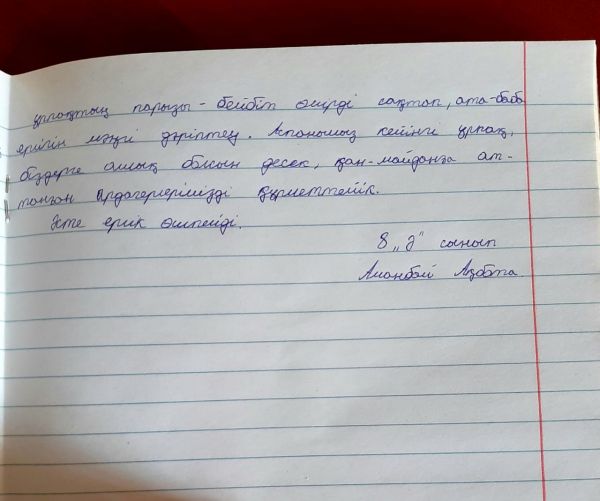 ұрпақтың парызы - бейбіт өмірді сақтап, ата-баба
ерлігін мәңгі дәріптеу. Аспанымыз кейінгі ұрпақ,
біздерге ашық болсын десек, қан-майданға ат-
танған Ардагерлерімізді құрметтейік.
Есте ерлік өшпейді.
8 „Ә" сынып
Аманбай Ақбота.